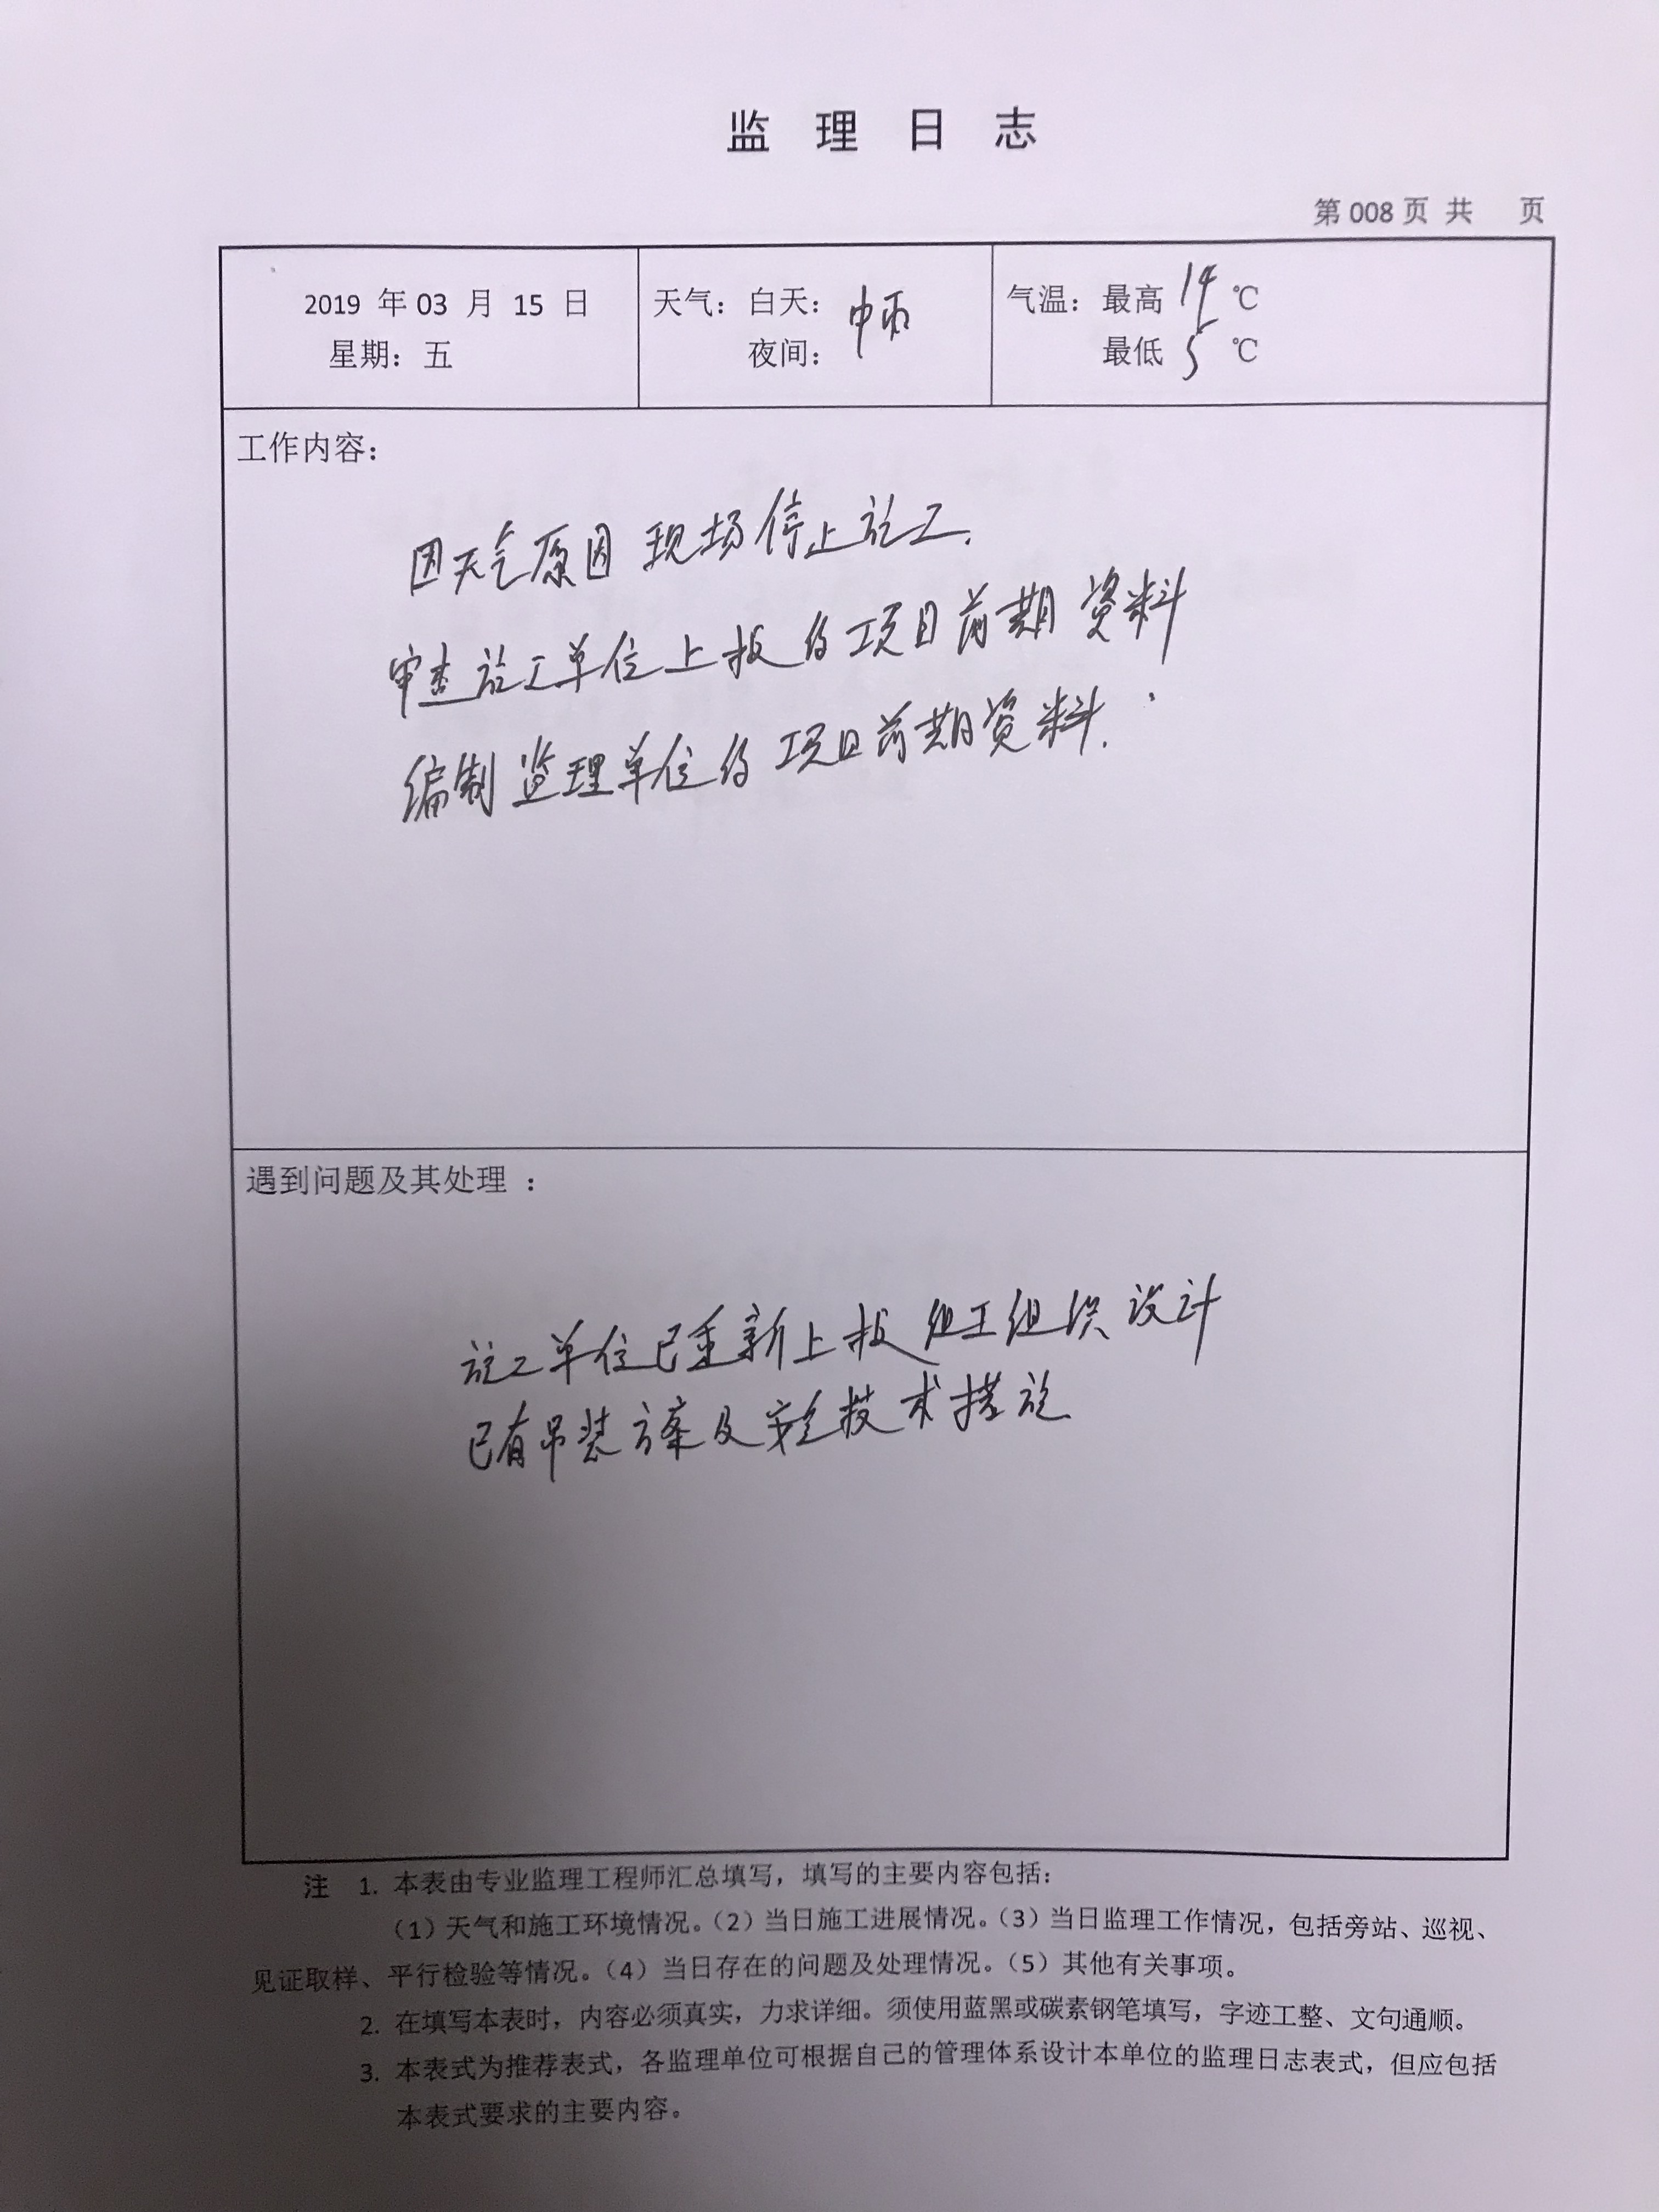 监理日志
第 008 页 共 页
2019 年 03 月 15 日
星期：五
天气：白天：
中雨
夜间：
气温：最高 14 ℃
最低 5 ℃
工作内容：
因天气原因现场停止施工.
审查施工单位上报的项目前期资料
编制监理单位的项目前期资料.
遇到问题及其处理 ：
施工单位已重新上报组工组织设计
已有吊装方案及安全技术措施
注 1. 本表由专业监理工程师汇总填写，填写的主要内容包括：
（1）天气和施工环境情况。（2）当日施工进展情况。（3）当日监理工作情况，包括旁站、巡视、
见证取样、平行检验等情况。（4）当日存在的问题及处理情况。（5）其他有关事项。
2. 在填写本表时，内容必须真实，力求详细。须使用蓝黑或碳素钢笔填写，字迹工整、文句通顺。
3. 本表式为推荐表式，各监理单位可根据自己的管理体系设计本单位的监理日志表式，但应包括
本表式要求的主要内容。